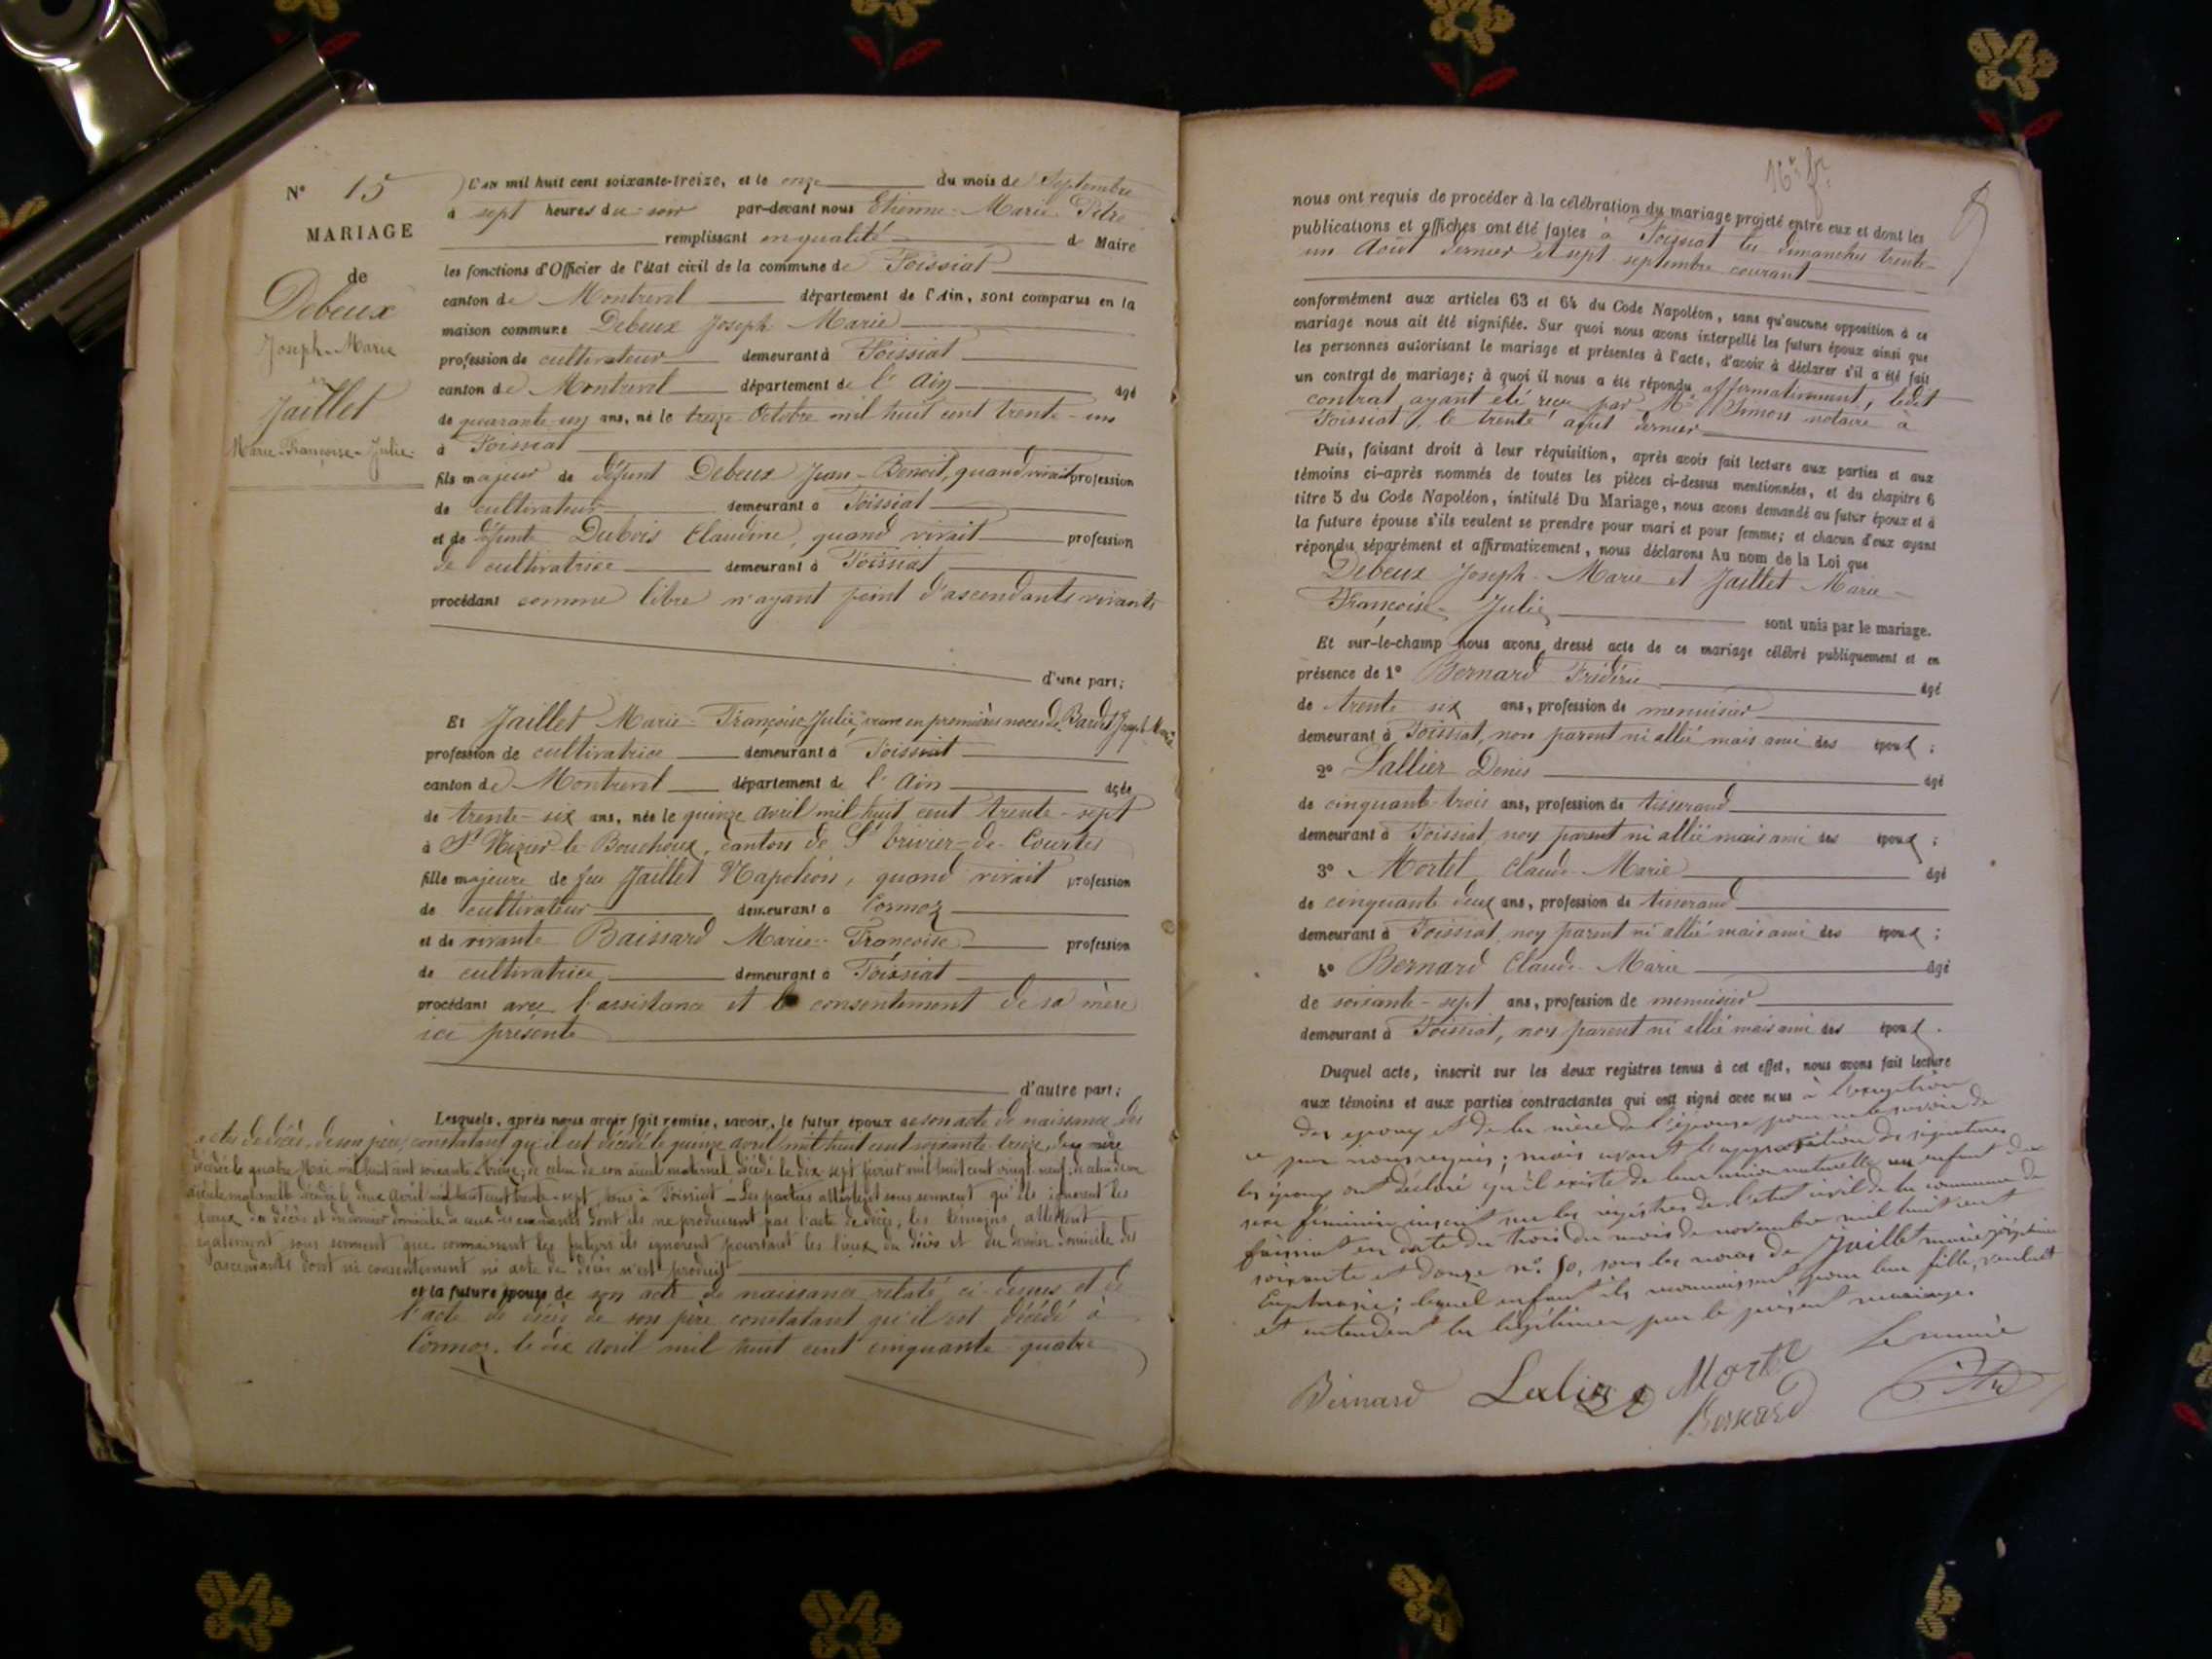 N° 15
MARIAGE
de
Debeux
Joseph-Marie
et
Jaillet
Marie-Françoise-Julie
L'an mil huit cent soixante-treize, et le onze du mois de Septembre
à sept heures du soir par-devant nous Etienne-Marie Pitre
remplissant en qualité de Maire
les fonctions d'Officier de l'état civil de la commune de Foissiat
canton de Montrevel département de l'Ain, sont comparus en la
maison commune Debeux Joseph Marie
profession de cultivateur demeurant à Foissiat
canton de Montrevel département de l'Ain âgé
de quarante-un ans, né le treize Octobre mil huit cent trente-un
à Foissiat
fils majeur de défunt Debeux Jean-Benoit, quand vivait profession
de cultivateur demeurant à Foissiat
et de défunte Dubois Claudine, quand vivait profession
de cultivatrice demeurant à Foissiat
procédant comme libre n'ayant point d'ascendants vivants
d'une part;
Et Jaillet Marie-Françoise Julie, veuve en premières noces de Bardet Joseph Marie
profession de cultivatrice demeurant à Foissiat
canton de Montrevel département de l'Ain âgée
de trente-six ans, née le quinze avril mil huit cent trente-sept
à St Nizier-le-Bouchoux, canton de St Trivier-de-Courtes
fille majeure de feu Jaillet Napoléon, quand vivait profession
de cultivateur demeurant à Cormoz
et de vivante Baissard Marie-Françoise profession
de cultivatrice demeurant à Foissiat
procédant avec l'assistance et le consentement de sa mère
ici présente
d'autre part;
Lesquels, après nous avoir fait remise, savoir, le futur époux de son acte de naissance, des
actes de décès, de son père, constatant qu'il est décédé le quinze avril mil huit cent soixante treize, de sa mère
décédée le quatre Mai mil huit cent soixante treize; de celui de son aïeul maternel décédé le dix-sept février mil huit cent vingt-neuf, de celui de son
aïeule maternelle décédée le deux avril mil huit cent trente-sept, tous à Foissiat - Les parties attestent sous serment qu'ils ignorent les
lieux du décès et du dernier domicile de ceux des ascendants dont ils ne produisent pas l'acte de décès, les témoins, attestent
également sous serment que connaissant les futurs ils ignorent pourtant les lieux du décès et du dernier domicile des
ascendants dont ni consentement ni acte de décès n'est produit
et la future épouse de son acte de naissance relaté ci-dessus et de
l'acte de décès de son père constatant qu'il est décédé à
Cormoz, le dix avril mil huit cent cinquante-quatre
nous ont requis de procéder à la célébration du mariage projeté entre eux et dont les
publications et affiches ont été faites à Foissiat les dimanches trente-
un Août dernier et sept septembre courant
conformément aux articles 63 et 64 du Code Napoléon, sans qu'aucune opposition à ce
mariage nous ait été signifiée. Sur quoi nous avons interpellé les futurs époux ainsi que
les personnes autorisant le mariage et présentes à l'acte, d'avoir à déclarer s'il a été fait
un contrat de mariage; à quoi il nous a été répondu affirmativement, ledit
contrat ayant été reçu par Me Simon notaire à
Foissiat, le trente août dernier
Puis, faisant droit à leur réquisition, après avoir fait lecture aux parties et aux
témoins ci-après nommés de toutes les pièces ci-dessus mentionnées, et du chapitre 6
titre 5 du Code Napoléon, intitulé Du Mariage, nous avons demandé au futur époux et à
la future épouse s'ils veulent se prendre pour mari et pour femme; et chacun d'eux ayant
répondu séparément et affirmativement, nous déclarons Au nom de la Loi que
Debeux Joseph-Marie et Jaillet Marie-
Françoise-Julie
sont unis par le mariage.
Et sur-le-champ nous avons dressé acte de ce mariage célébré publiquement et en
présence de 1° Bernard Frédéric âgé
de trente six ans, profession de menuisier
demeurant à Foissiat, non parent ni allié mais ami des époux;
2° Lallier Denis âgé
de cinquante-trois ans, profession de tisserand
demeurant à Foissiat, non parent ni allié mais ami des époux;
3° Mortel Claude-Marie âgé
de cinquante deux ans, profession de tisserand
demeurant à Foissiat, non parent ni allié mais ami des époux;
4° Bernard Claude-Marie âgé
de soixante-sept ans, profession de menuisier
demeurant à Foissiat, non parent ni allié mais ami des époux.
Duquel acte, inscrit sur les deux registres tenus à cet effet, nous avons fait lecture
aux témoins et aux parties contractantes qui ont signé avec nous à l'exception
des époux et de la mère de l'épouse pour ne le savoir de
ce par nous requis; mais avant l'apposition des signatures
les époux ont déclaré qu'il existe de leur union naturelle un enfant du
sexe féminin inscrit sur les registres de l'état civil de la commune de
foissiat en date du trois du mois de novembre mil huit cent
soixante et douze n° 50, sous les noms de Jaillet marie joséphine
Euphrasie; lequel enfant ils reconnaissent pour leur fille, veulent
et entendent la légitimer par le présent mariage.
Le maire
Bernard Lalier Mortel
Bernard Pitre